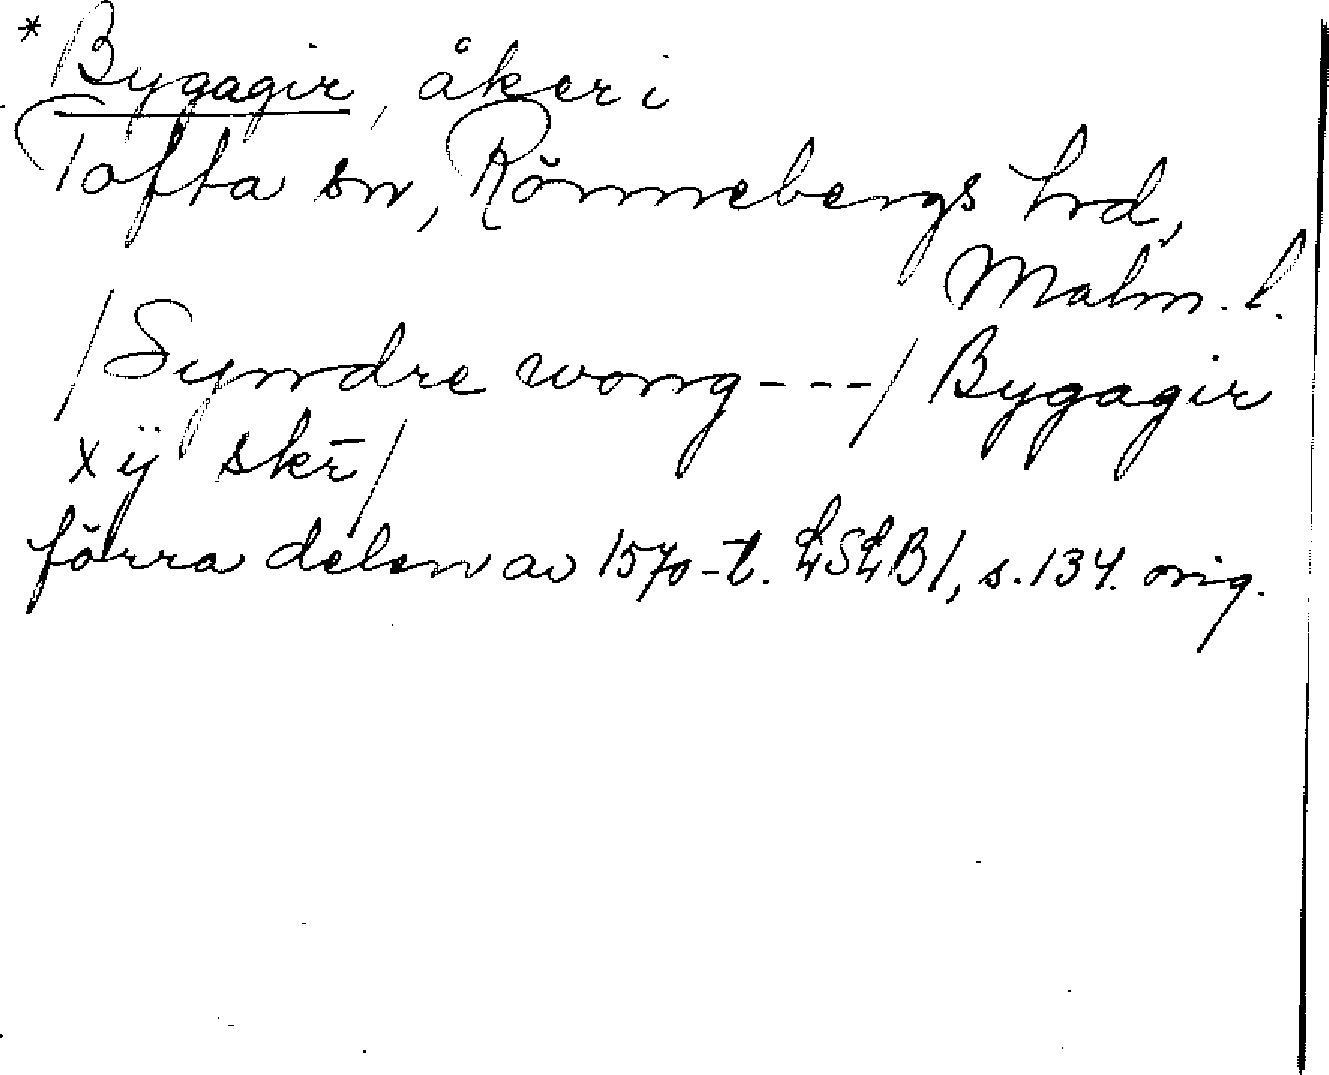 * Bygagir, åker i
Tofta sn, Rönnebergs hrd,
Malm. l.
/Syndre wong---/ Bygagir
xÿ skr̄/
förra delen av 1570-t. LSLB1, s. 134. orig.